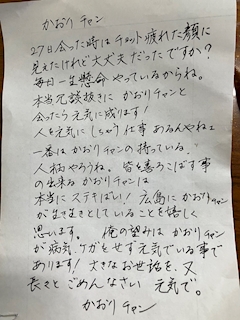 かおり チャン
27日会った時は チョット疲れた顔に
見えたけれど大丈夫だったですか?
毎日一生懸命やっているからね。
本当冗談抜きに かおりチャンと
会ったら元気に成ります!
人を元気に しちゃう仕事 あるんやねェ
一番は かおりチャンの 持っている
人柄やろうね。 皆を喜ろこばす事
の出来る かおりチャンは
本当に ステキばい! 広島に かおりチャン
が 生き生きとしている ことを 嬉しく
思います。 俺の望みは かおりチャン
が 病気、ケガをせず 元気でいる事で
あります! 大きなお世話を、又
長々と ごめんなさい 元気で。
かおり チャン